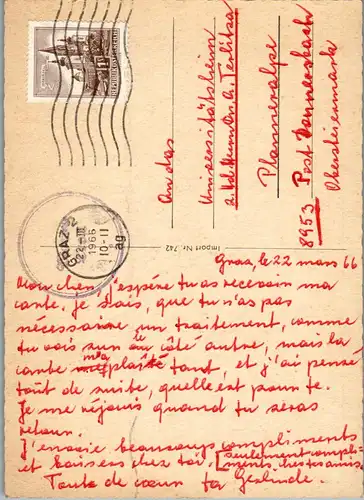 GRAZ 2
22.-III
1966
10-11
ag
REPUBLIK ÖSTERREICH
Import Nr. 742
An das
Universitätsheim
Planneralpe
8953 Post Donnersbach
Obersteiermark
Graz, le 22 mars 66
Mon cher, j'espère tu as recevoir ma
carte. Je sais, que tu n'as pas
nécessaire un traitement, comme
tu vois sur le côté autre, mais la
carte m'a plaîté tant, et j'ai pensé
tout de suite, quelle est pour te.
Je me réjouis quand tu seras
retour.
J'envoie beaucoup compliments
et baisers chez toi, [seulement compli-
ments chez les amis.
Toute de cœur ta Gerlinde.